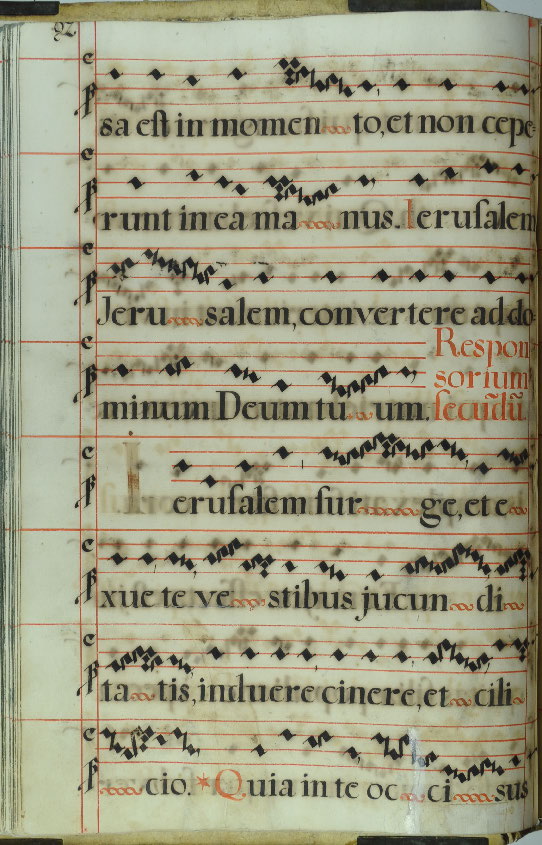 92
sa est in momen to, et non cepe-
runt in ea ma nus. Ierusalem
Jeru salem, convertere ad do-
minum Deum tu um. Respon
sorium
secūdū
Ierusalem sur ge, et e
xue te ve stibus jucun di
ta tis, induere cinere, et cili
cio. * Quia in te oc ci sus